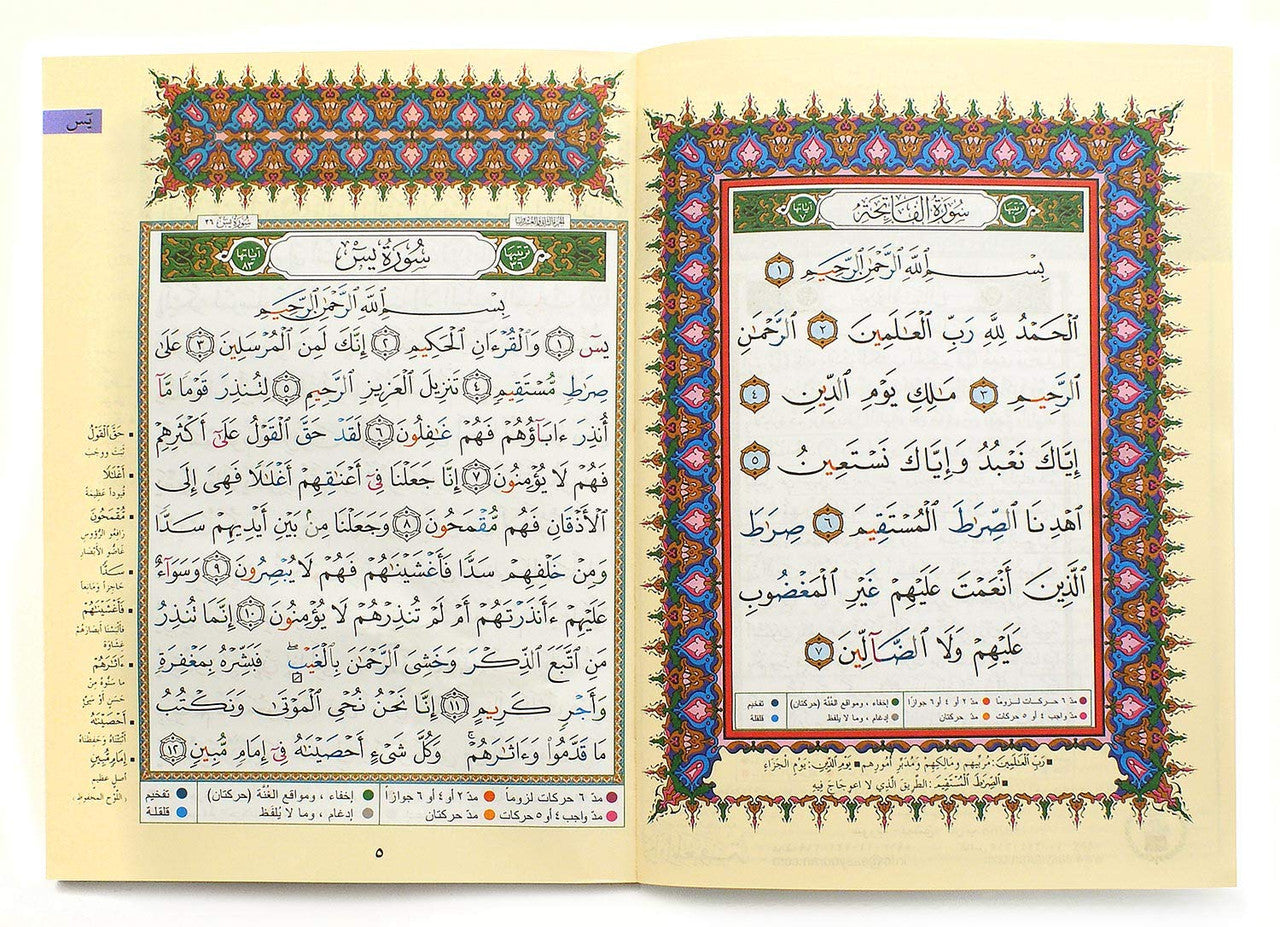 سُورَةُ الفَاتِحَةِ
ترتيبها
آياتها
بِسْمِ ٱللَّهِ ٱلرَّحْمَٰنِ ٱلرَّحِيمِ ١
ٱلْحَمْدُ لِلَّهِ رَبِّ ٱلْعَٰلَمِينَ ٢ ٱلرَّحْمَٰنِ
ٱلرَّحِيمِ ٣ مَٰلِكِ يَوْمِ ٱلدِّينِ ٤
إِيَّاكَ نَعْبُدُ وَإِيَّاكَ نَسْتَعِينُ ٥
ٱهْدِنَا ٱلصِّرَٰطَ ٱلْمُسْتَقِيمَ ٦ صِرَٰطَ
ٱلَّذِينَ أَنْعَمْتَ عَلَيْهِمْ غَيْرِ ٱلْمَغْضُوبِ
عَلَيْهِمْ وَلَا ٱلضَّآلِّينَ ٧
مدّ ٦ حركات لزوماً مدّ ٢ أو ٤ أو ٦ جوازاً إخفاء، ومواقع الغُنَّة (حركتان) تفخيم
مدّ واجب ٤ أو ٥ حركات مدّ حركتان إدغام، وما لا يلفظ قلقلة
رَبِّ ٱلْعَٰلَمِينَ: مُرَبِّيهم ومَالِكِهم ومُدَبِّرِ أُمورِهم يَوْمِ ٱلدِّينِ: يَوْمِ الجَزَاءِ
ٱلصِّرَٰطَ ٱلْمُسْتَقِيمَ: الطريق الذي لا اعوجاج فيه
يسٓ
سُورَةُ يسٓ ٣٦
سُورَةُ يسٓ
ترتيبها ٣٦
آياتها ٨٣
بِسْمِ ٱللَّهِ ٱلرَّحْمَٰنِ ٱلرَّحِيمِ
يسٓ ١ وَٱلْقُرْءَانِ ٱلْحَكِيمِ ٢ إِنَّكَ لَمِنَ ٱلْمُرْسَلِينَ ٣ عَلَىٰ
صِرَٰطٍ مُّسْتَقِيمٍ ٤ تَنزِيلَ ٱلْعَزِيزِ ٱلرَّحِيمِ ٥ لِتُنذِرَ قَوْمًا مَّآ
أُنذِرَ ءَابَآؤُهُمْ فَهُمْ غَٰفِلُونَ ٦ لَقَدْ حَقَّ ٱلْقَوْلُ عَلَىٰٓ أَكْثَرِهِمْ
فَهُمْ لَا يُؤْمِنُونَ ٧ إِنَّا جَعَلْنَا فِىٓ أَعْنَٰقِهِمْ أَغْلَٰلًا فَهِىَ إِلَى
ٱلْأَذْقَانِ فَهُم مُّقْمَحُونَ ٨ وَجَعَلْنَا مِنۢ بَيْنِ أَيْدِيهِمْ سَدًّا
وَمِنْ خَلْفِهِمْ سَدًّا فَأَغْشَيْنَٰهُمْ فَهُمْ لَا يُبْصِرُونَ ٩ وَسَوَآءٌ
عَلَيْهِمْ ءَأَنذَرْتَهُمْ أَمْ لَمْ تُنذِرْهُمْ لَا يُؤْمِنُونَ ١٠ إِنَّمَا تُنذِرُ
مَنِ ٱتَّبَعَ ٱلذِّكْرَ وَخَشِىَ ٱلرَّحْمَٰنَ بِٱلْغَيْبِ ۖ فَبَشِّرْهُ بِمَغْفِرَةٍ
وَأَجْرٍ كَرِيمٍ ١١ إِنَّا نَحْنُ نُحْىِ ٱلْمَوْتَىٰ وَنَكْتُبُ
مَا قَدَّمُوا۟ وَءَاثَٰرَهُمْ ۚ وَكُلَّ شَىْءٍ أَحْصَيْنَٰهُ فِىٓ إِمَامٍ مُّبِينٍ ١٢
حَقَّ ٱلْقَوْلُ
ثبت ووجب
أَغْلَٰلًا
قيوداً عظيمة
مُّقْمَحُونَ
رافعو الرؤوس
غاضُّو الأبصار
سَدًّا
حاجزاً ومانعاً
فَأَغْشَيْنَٰهُمْ
فألبسنا أبصارهم
غشاوة
ءَاثَٰرَهُمْ
ما سنّوه من
حسن أو سيّئ
أَحْصَيْنَٰهُ
أثبتناه وحفظناه
إِمَامٍ مُّبِينٍ
أصل عظيم
(اللوح المحفوظ)
مدّ ٦ حركات لزوماً مدّ ٢ أو ٤ أو ٦ جوازاً إخفاء، ومواقع الغُنَّة (حركتان) تفخيم
مدّ واجب ٤ أو ٥ حركات مدّ حركتان إدغام، وما لا يُلفَظ قلقلة
٥